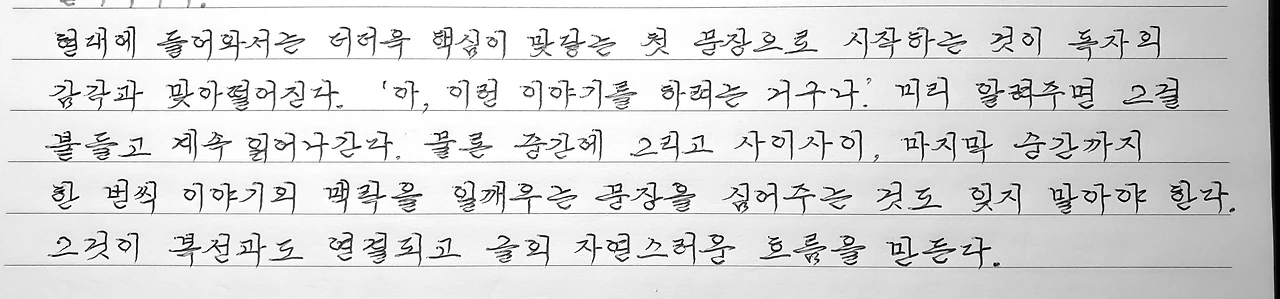 현대에 들어와서는 더더욱 핵심이 맞닿는 첫 문장으로 시작하는 것이 독자의
감각과 맞아떨어진다. '아, 이런 이야기를 하려는 거구나.' 미리 알려주면 그걸
붙들고 계속 읽어나간다. 물론 중간에 그리고 사이사이, 마지막 순간까지
한 번씩 이야기의 맥락을 일깨우는 문장을 심어주는 것도 잊지 말아야 한다.
그것이 복선과도 연결되고 글의 자연스러운 흐름을 만든다.